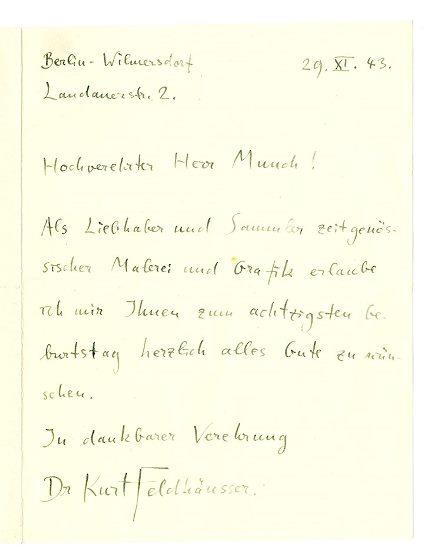 Berlin-Wilmersdorf 29. XI. 43.
Landauerstr. 2.
Hochverehrter Herr Munch!
Als Liebhaber und Sammler zeitgenös-
sischer Malerei und Grafik erlaube
ich mir Ihnen zum achtzigsten Ge-
burtstag herzlich alles Gute zu wün-
schen.
In dankbarer Verehrung
Dr Kurt Feldhäusser.